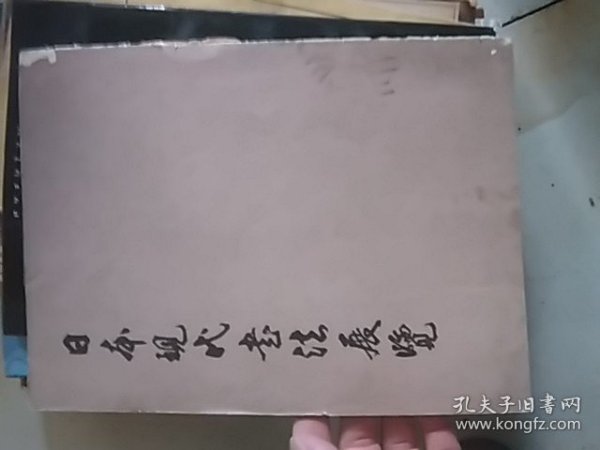 日本现代书法展覽
孔夫子旧書网
www.kongfz.com